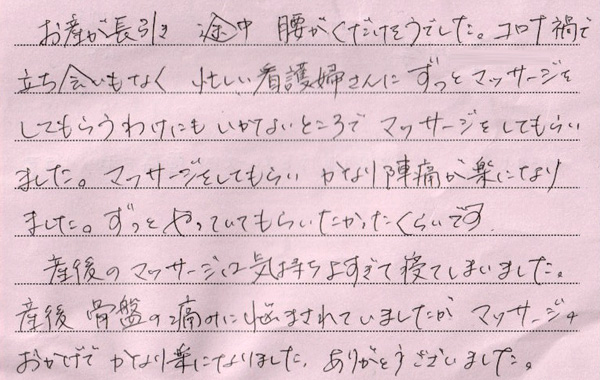 お産が長引き 途中 腰がくだけそうでした。コロナ禍で
立ち会いもなく 忙しい看護婦さんに ずっと マッサージを
してもらうわけにも いかないところで マッサージをしてもらい
ました。マッサージをしてもらい かなり陣痛が楽になり
ました。ずっと やっていてもらいたかったくらいです
産後のマッサージは気持ちよすぎて寝てしまいました。
産後 骨盤の痛みに悩まされていましたが マッサージの
おかげで かなり楽になりました、ありがとうございました。